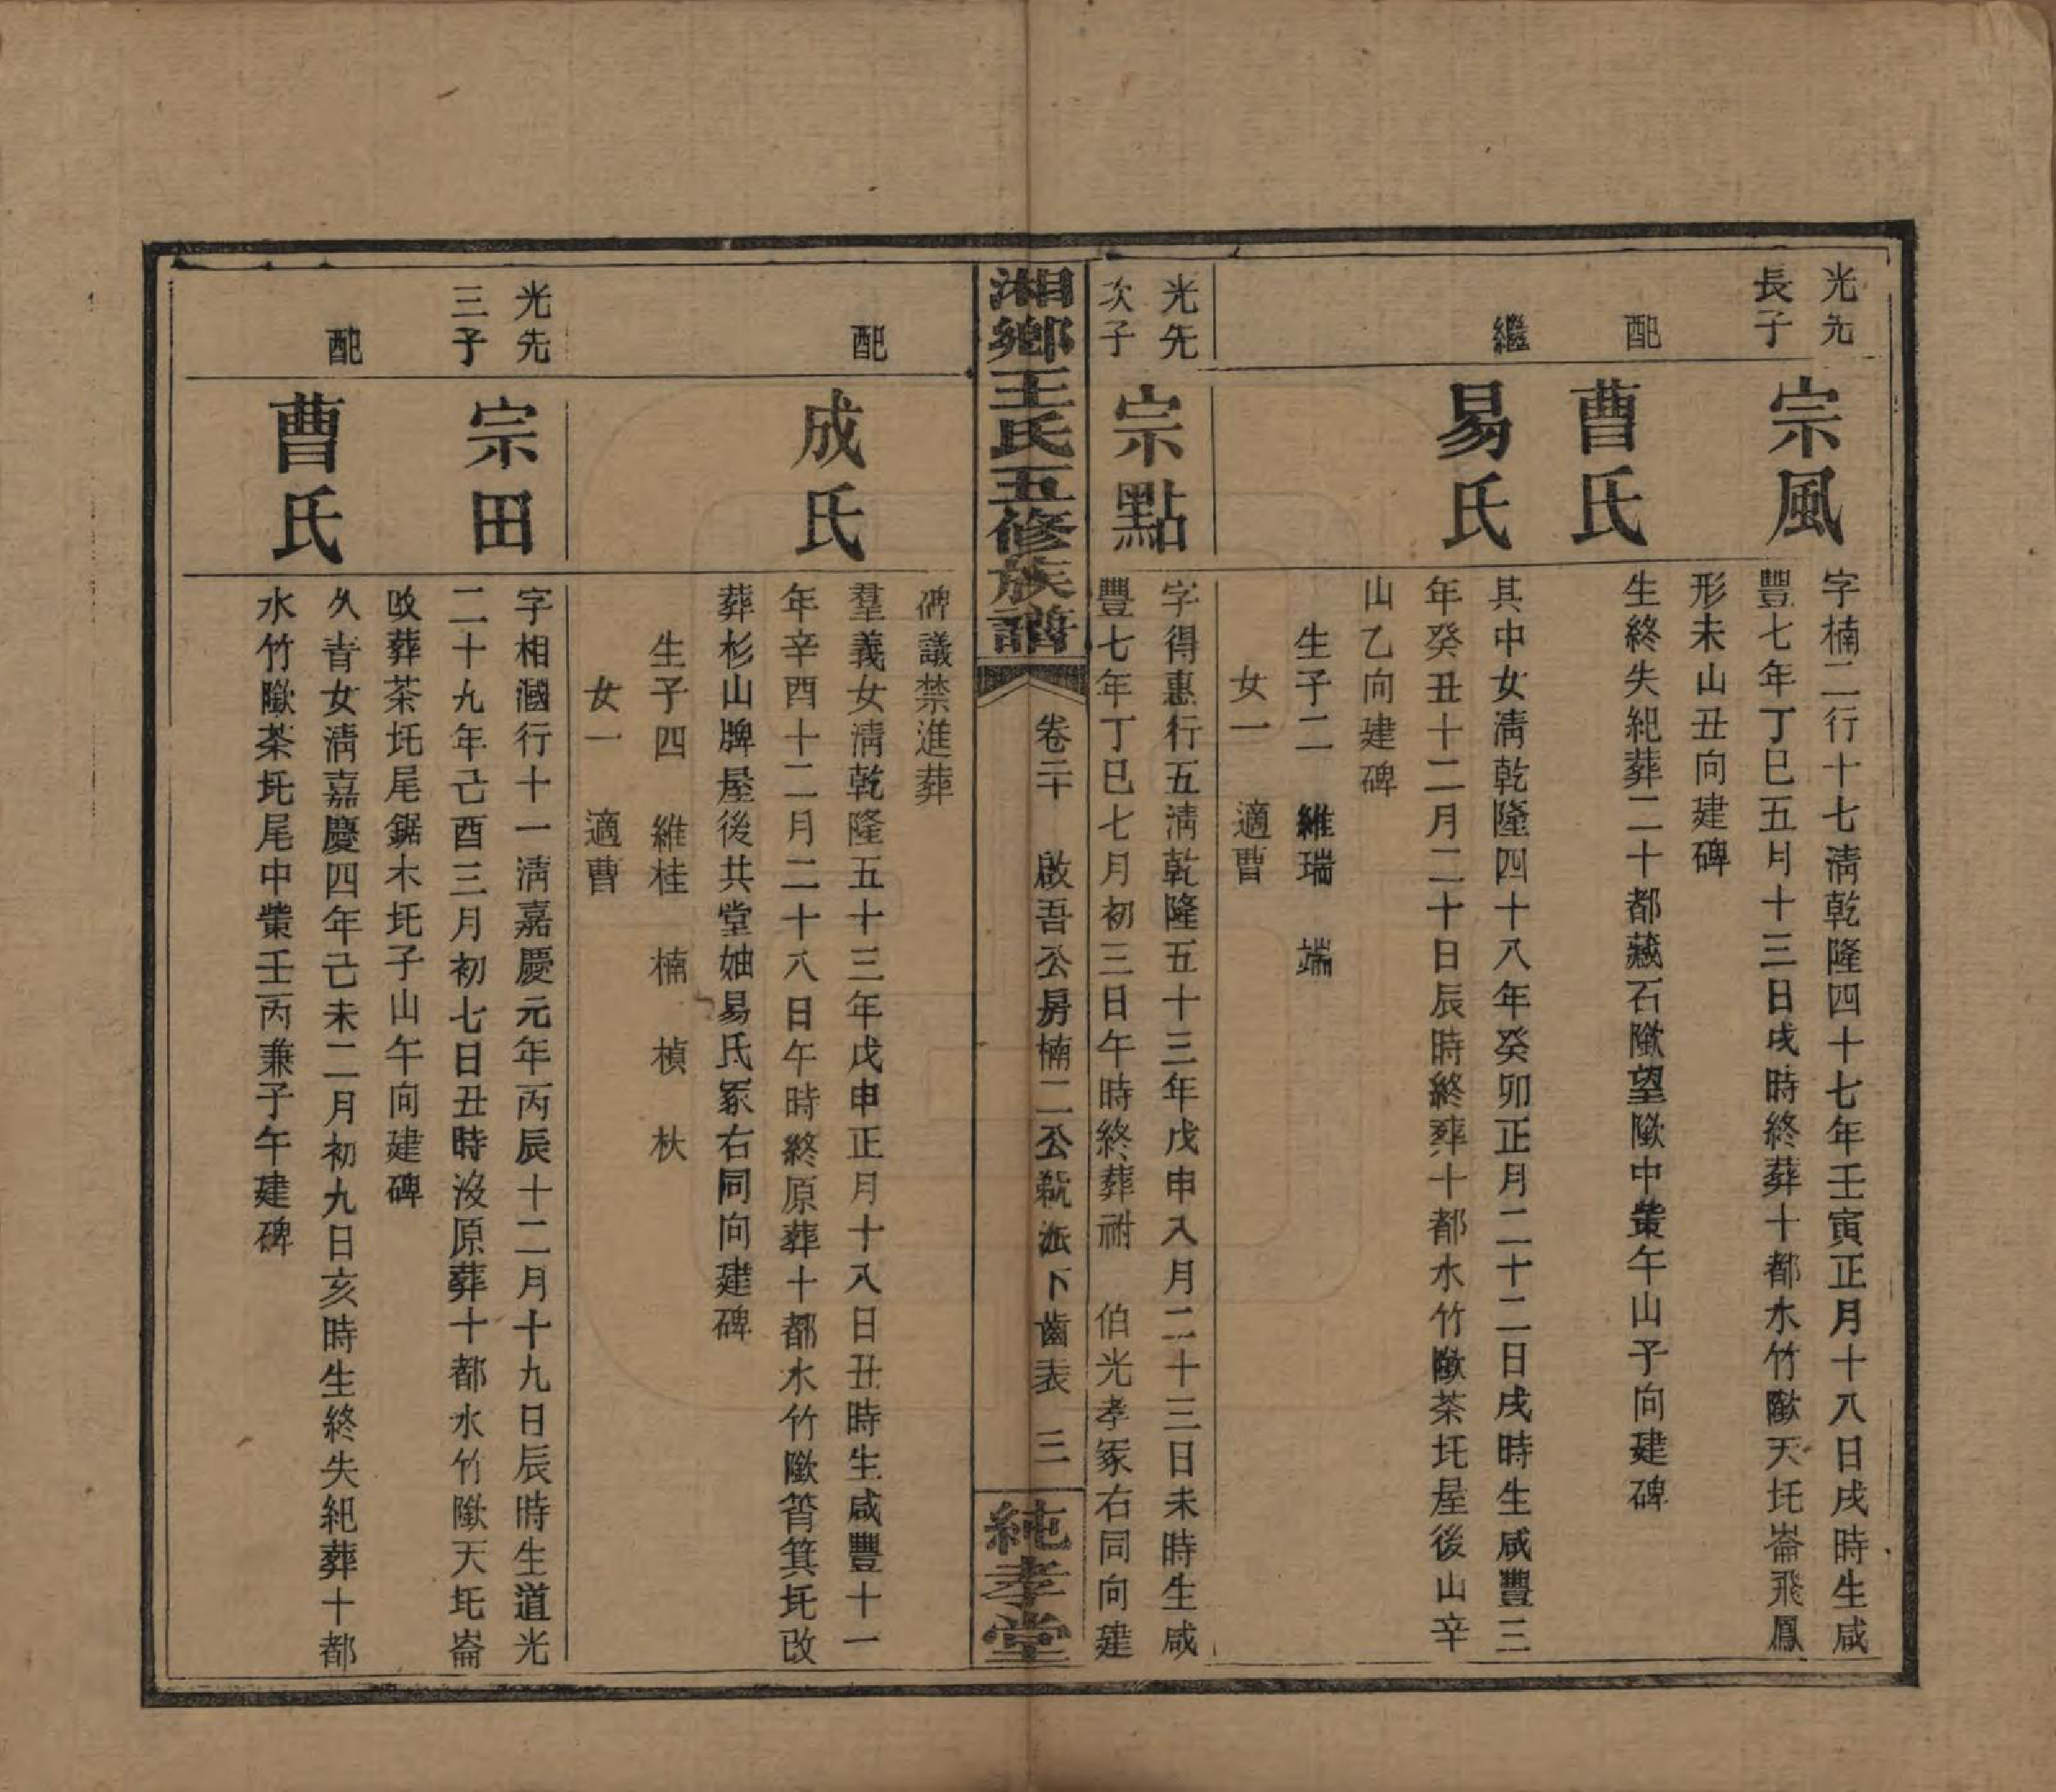 光先
長子
宗風
字楠二行十七清乾隆四十七年壬寅正月十八日戌時生咸
豐七年丁巳五月十三日戌時終葬十都水竹𡼏天圫崙飛鳳
形未山丑向建碑
配
曹氏
生終失紀葬二十都藏石𡼏望𡼏中塋午山子向建碑
繼
易氏
其中女清乾隆四十八年癸卯正月二十二日戌時生咸豐三
年癸丑十二月二十日辰時終葬十都水竹𡼏茶圫屋後山辛
山乙向建碑
生子二 維瑞 端
女一 適曹
光先
次子
宗點
字得惠行五清乾隆五十三年戊申八月二十三日未時生咸
豐七年丁巳七月初三日午時終葬祔 伯光孝冢右同向建
湘鄉王氏五修族譜
卷二十 啟吾公房楠二公𫞩派下齒表 三
純孝堂
碑議禁進葬
配
成氏
羣義女清乾隆五十三年戊申正月十八日丑時生咸豐十一
年辛酉十二月二十八日午時終原葬十都水竹𡼏筲箕圫改
葬杉山牌屋後共堂妯易氏冢右同向建碑
生子四 維桂 楠 楨 杕
女一 適曹
光先
三子
宗田
字相漍行十一清嘉慶元年丙辰十二月十九日辰時生道光
二十九年己酉三月初七日丑時沒原葬十都水竹𡼏天圫崙
改葬茶圫尾鋸木圫子山午向建碑
配
曹氏
久春女清嘉慶四年己未二月初九日亥時生終失紀葬十都
水竹𡼏茶圫尾中塋壬丙兼子午建碑